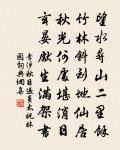 望水尋山二里餘
竹林斜到地仙居
秋光何處堪消日
玄晏先生滿架書
李涉秋日過員太祝林
園詞典網集